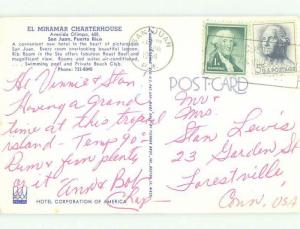 EL MIRAMAR CHARTERHOUSE
Avenida Olimpo, 606,
San Juan, Puerto Rico
A convenient new hotel in the heart of picturesque
San Juan. Every room with ocean or lagoon view.
Rib Room in the Sky on the exotic Rooftop and
magnificent view. Rooms and suites air-conditioned.
Swimming pool and Private Beach Club.
Phone: 722-5040
SAN JUAN
POST CARD
Hi, Vinnie & Stan -
Having a grand
time at this tropical
island - Temp 90 -
Rum & fun plenty
of it
Ann & Bob
Mr &
Mrs.
Stan Lewis
23 Garden St
Forestville,
Conn. USA
HOTEL CORPORATION OF AMERICA